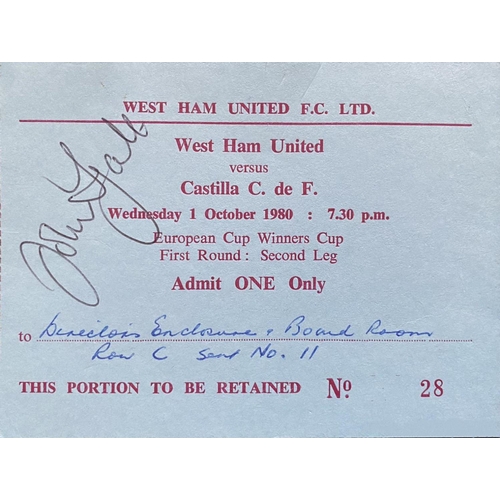 WEST HAM UNITED F.C. LTD.
West Ham United
versus
Castilla C. de F.
Wednesday 1 October 1980 : 7.30 p.m.
European Cup Winners Cup
First Round : Second Leg
Admit ONE Only
to Director's Enclosure & Board Room
Row C Seat No. 11
THIS PORTION TO BE RETAINED No. 28
John